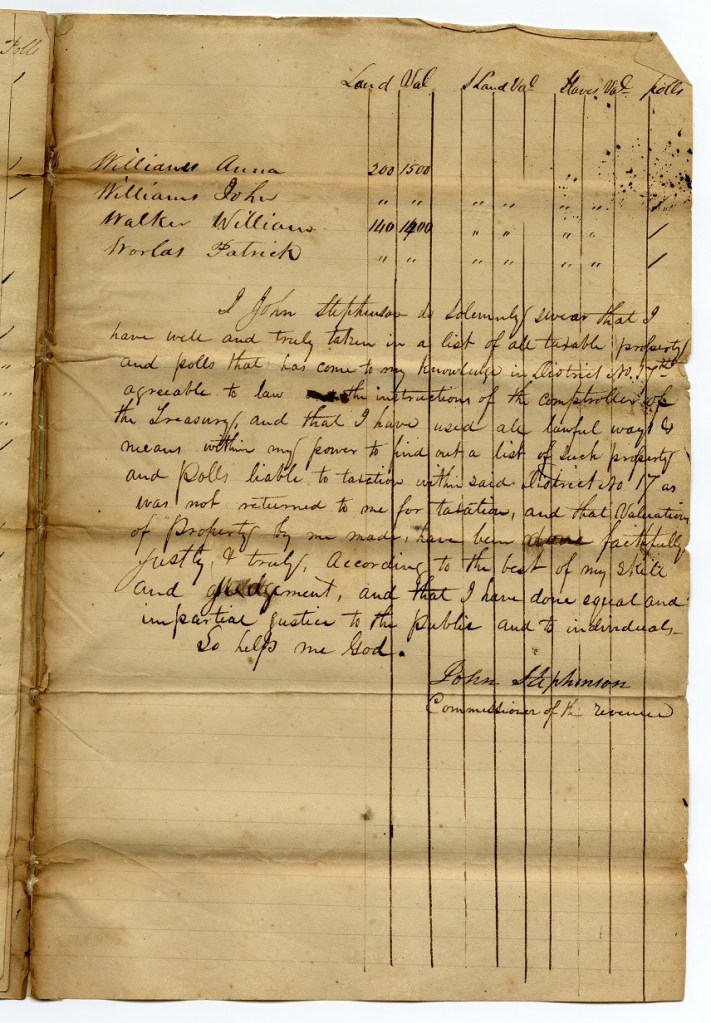 Polls
Land Val S Land Val Slaves Val polls
Williams Anna 200 1500 "
Williams John " " " " " " /
Walker William 140 1400 " " " " /
Worlas Patrick " " " " " " /
I John Stephenson do solemnly swear that I
have well and truly taken in a list of all taxable property
and polls that has come to my knowledge in District No. 17th
agreeable to law the instructions of the comptroller of
the Treasury, and that I have used all lawful ways &
means within my power to find out a list of such property
and polls liable to taxation within said District No 17 as
was not returned to me for taxation, and that Valuation
of Property by me made, have been done faithfully
justly, & truly, According to the best of my skill
and judgement, and that I have done equal and
impartial justice to the public and to individuals
So help me God.
John Stephenson
Commissioner of th revenue